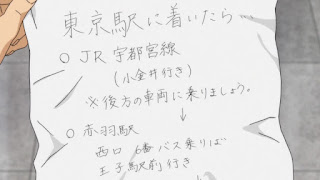 東京駅に着いたら…
○ JR 宇都宮線
(小金井行き)
※後方の車両に乗りましょう。
↓
○ 赤羽駅
西口 6番バス乗りば
王子駅前行き